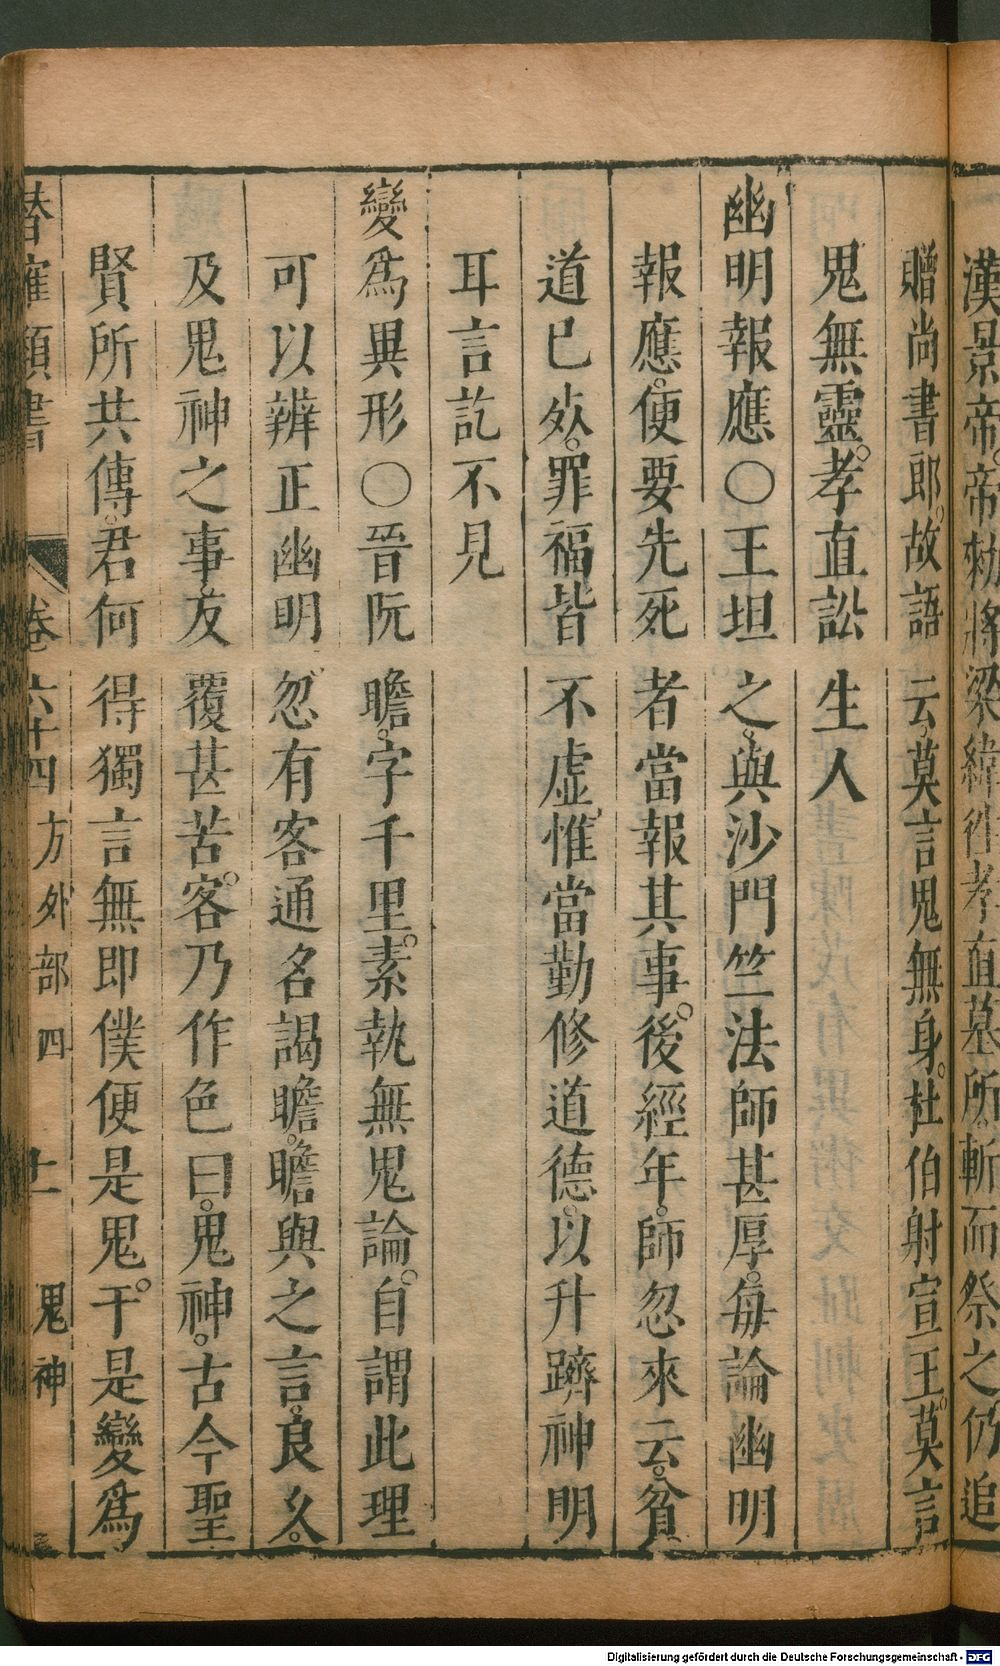 漢景帝帝勑將梁緯徃孝直墓所斬而祭之仍追
贈尚書郎故語云莫言鬼無身杜伯射宣王莫言
鬼無靈孝直訟生人
幽明報應〇王坦之與沙門竺法師甚厚每論幽明
報應便要先死者當報其事後經年師忽來云貧
道已死罪福皆不虛惟當勤修道德以升躋神明
耳言訖不見
變爲異形〇晉阮瞻字千里素執無鬼論自謂此理
可以辨正幽明忽有客通名謁瞻瞻與之言良久
及鬼神之事反覆甚苦客乃作色曰鬼神古今聖
賢所共傳君何得獨言無即僕便是鬼于是變爲
潛確類書 卷六十四 方外部四 十一 鬼神
Digitalisierung gefördert durch die Deutsche Forschungsgemeinschaft - DFG